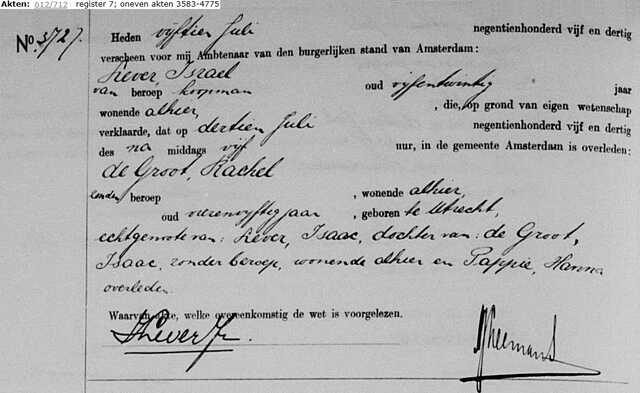 Akten: 612/712 register 7; oneven akten 3583-4775
No. 3727.
Heden vijftien Juli negentienhonderd vijf en dertig
verscheen voor mij Ambtenaar van den burgerlijken stand van Amsterdam:
Liever, Israel
van beroep koopman oud vijfentwintig jaar
wonende alhier, , die, op grond van eigen wetenschap
verklaarde, dat op dertien Juli negentienhonderd vijf en dertig
des na middags vijf uur, in de gemeente Amsterdam is overleden:
de Groot, Rachel
zonder beroep , wonende alhier,
oud vierenvijftig jaar , geboren te Utrecht,
echtgenote van: Liever, Isaac, dochter van: de Groot,
Isaac, zonder beroep, wonende alhier en Pappie, Hanna
overleden.
Waarvan akte, welke overeenkomstig de wet is voorgelezen.